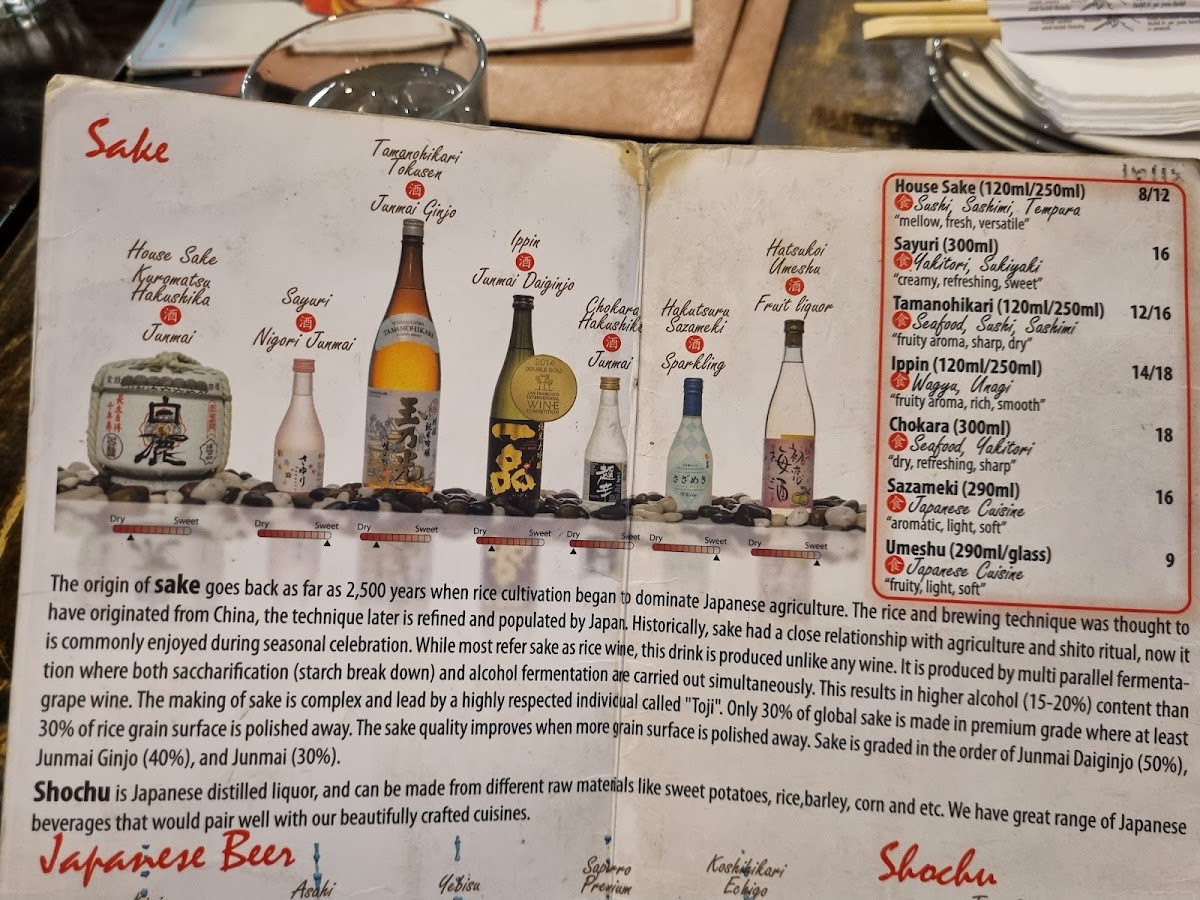 Sake
House Sake
Kuromatsu
Hakushika
酒
Junmai
Sayuri
酒
Nigori Junmai
Tamanohikari
Tokusen
酒
Junmai Ginjo
Ippin
酒
Junmai Daiginjo
Chokara
Hakushika
酒
Junmai
Hakutsuru
Sazameki
酒
Sparkling
Hatsukoi
Umeshu
酒
Fruit liquor
白鹿
さゆり
TAMANOHIKARI
玉乃光
2014
DOUBLE GOLD
SAN FRANCISCO
INTERNATIONAL
WINE
COMPETITION
一品
超辛
さざめき
White
初恋
梅酒
Dry Sweet
Dry Sweet
Dry Sweet
Dry Sweet
Dry Sweet
Dry Sweet
Dry Sweet
House Sake (120ml/250ml) 8/12
食 Sushi, Sashimi, Tempura
"mellow, fresh, versatile"
Sayuri (300ml) 16
食 Yakitori, Sukiyaki
"creamy, refreshing, sweet"
Tamanohikari (120ml/250ml) 12/16
食 Seafood, Sushi, Sashimi
"fruity aroma, sharp, dry"
Ippin (120ml/250ml) 14/18
食 Wagyu, Unagi
"fruity aroma, rich, smooth"
Chokara (300ml) 18
食 Seafood, Yakitori
"dry, refreshing, sharp"
Sazameki (290ml) 16
食 Japanese Cuisine
"aromatic, light, soft"
Umeshu (290ml/glass) 9
食 Japanese Cuisine
"fruity, light, soft"
The origin of sake goes back as far as 2,500 years when rice cultivation began to dominate Japanese agriculture. The rice and brewing technique was thought to
have originated from China, the technique later is refined and populated by Japan. Historically, sake had a close relationship with agriculture and shito ritual, now it
is commonly enjoyed during seasonal celebration. While most refer sake as rice wine, this drink is produced unlike any wine. It is produced by multi parallel fermenta-
tion where both saccharification (starch break down) and alcohol fermentation are carried out simultaneously. This results in higher alcohol (15-20%) content than
grape wine. The making of sake is complex and lead by a highly respected individual called "Toji". Only 30% of global sake is made in premium grade where at least
30% of rice grain surface is polished away. The sake quality improves when more grain surface is polished away. Sake is graded in the order of Junmai Daiginjo (50%),
Junmai Ginjo (40%), and Junmai (30%).
Shochu is Japanese distilled liquor, and can be made from different raw materials like sweet potatoes, rice,barley, corn and etc. We have great range of Japanese
beverages that would pair well with our beautifully crafted cuisines.
Japanese Beer
Asahi
Yebisu
Sapporo
Premium
Koshihikari
Echigo
Shochu